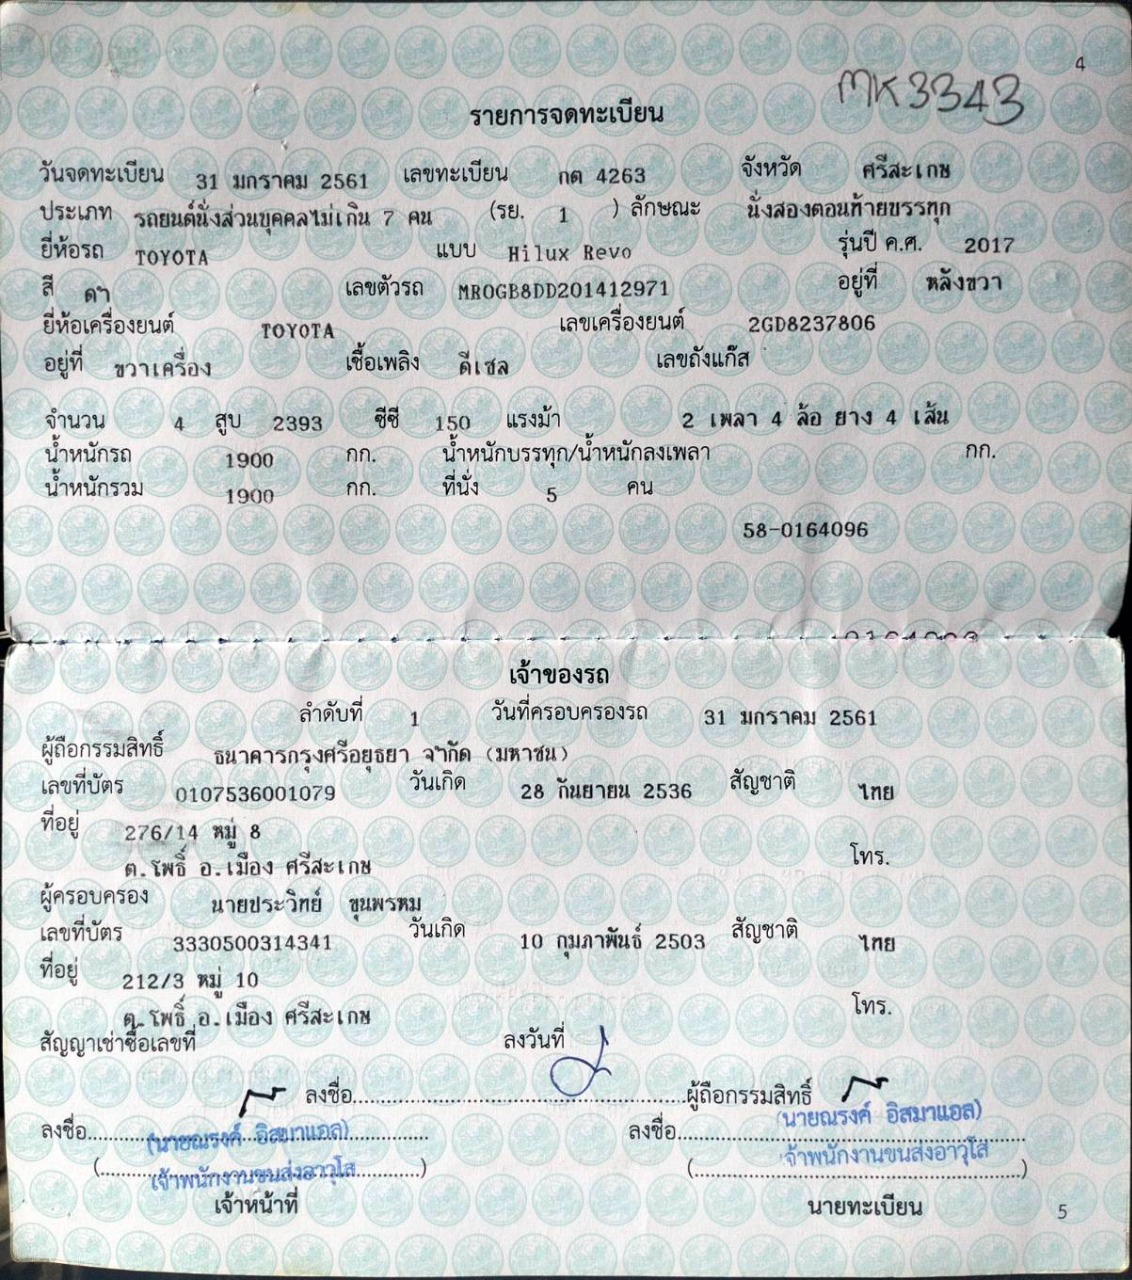 4
MK3343
รายการจดทะเบียน
วันจดทะเบียน 31 มกราคม 2561 เลขทะเบียน กต 4263 จังหวัด ศรีสะเกษ
ประเภท รถยนต์นั่งส่วนบุคคลไม่เกิน 7 คน (รย. 1 ) ลักษณะ นั่งสองตอนท้ายบรรทุก
ยี่ห้อรถ TOYOTA แบบ Hilux Revo รุ่นปี ค.ศ. 2017
สี ดำ เลขตัวรถ MR0GB8DD201412971 อยู่ที่ หลังขวา
ยี่ห้อเครื่องยนต์ TOYOTA เลขเครื่องยนต์ 2GD8237806
อยู่ที่ ขวาเครื่อง เชื้อเพลิง ดีเซล เลขถังแก๊ส
จำนวน 4 สูบ 2393 ซีซี 150 แรงม้า 2 เพลา 4 ล้อ ยาง 4 เส้น
น้ำหนักรถ 1900 กก. น้ำหนักบรรทุก/น้ำหนักลงเพลา กก.
น้ำหนักรวม 1900 กก. ที่นั่ง 5 คน
58-0164096
เจ้าของรถ
ลำดับที่ 1 วันที่ครอบครองรถ 31 มกราคม 2561
ผู้ถือกรรมสิทธิ์ ธนาคารกรุงศรีอยุธยา จำกัด (มหาชน)
เลขที่บัตร 0107536001079 วันเกิด 28 กันยายน 2536 สัญชาติ ไทย
ที่อยู่ 276/14 หมู่ 8
ต.โพธิ์ อ.เมือง ศรีสะเกษ โทร.
ผู้ครอบครอง นายประวิทย์ ขุนพรหม
เลขที่บัตร 3330500314341 วันเกิด 10 กุมภาพันธ์ 2503 สัญชาติ ไทย
ที่อยู่ 212/3 หมู่ 10
ต.โพธิ์ อ.เมือง ศรีสะเกษ โทร.
สัญญาเช่าซื้อเลขที่ ลงวันที่
ลงชื่อ ผู้ถือกรรมสิทธิ์
ลงชื่อ (นายณรงค์ อิสมาแอล) ลงชื่อ (นายณรงค์ อิสมาแอล)
(เจ้าพนักงานขนส่งอาวุโส) (เจ้าพนักงานขนส่งอาวุโส)
เจ้าหน้าที่ นายทะเบียน
5